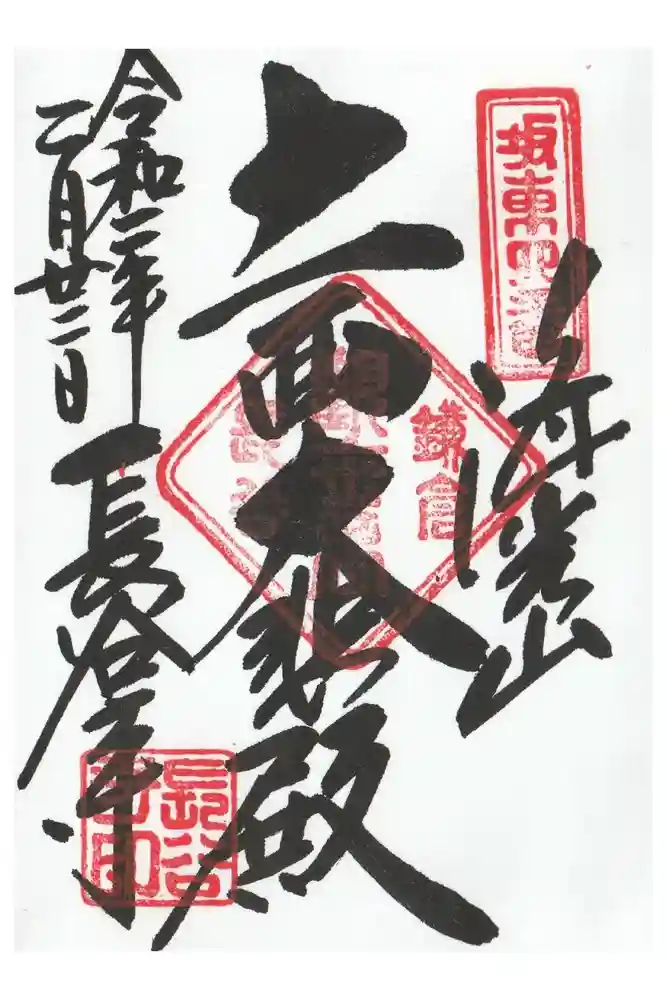 坂東四番
海光山
鎌倉
十一面大悲殿
令和二年
二月廿二日
長谷寺
長谷
寺印